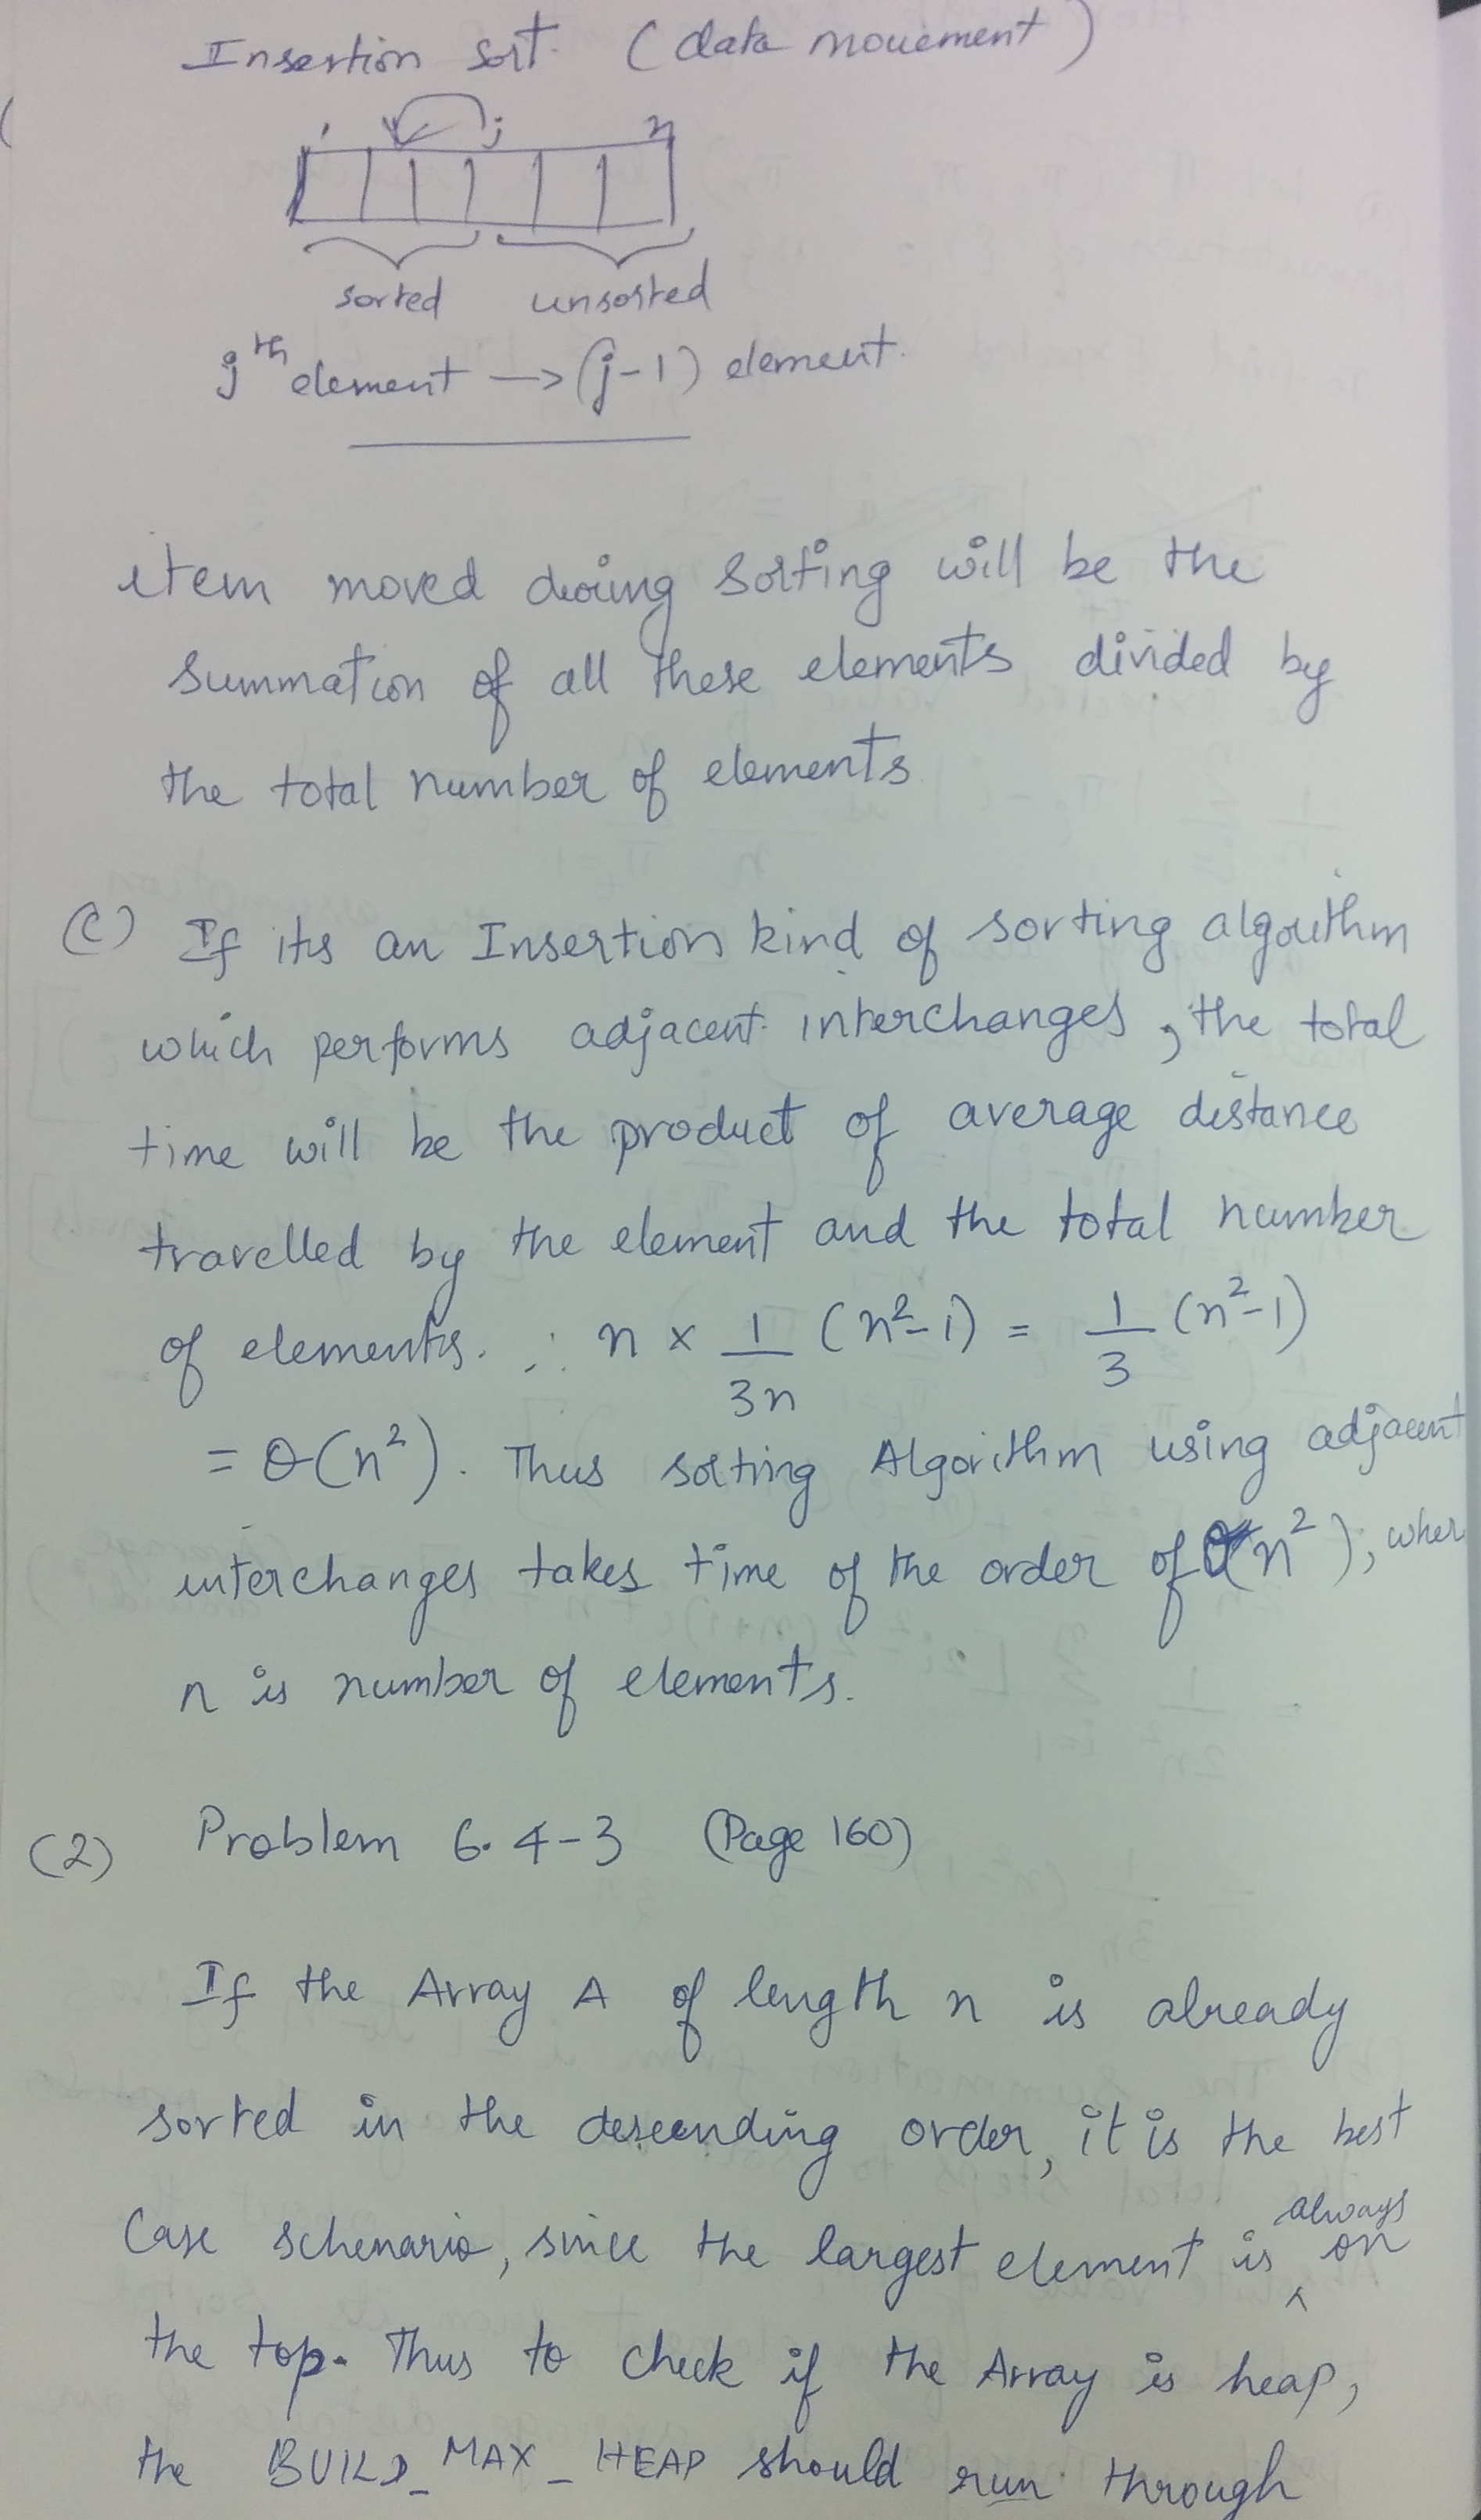 Insertion sort. (data movement)
1 j n
sorted unsorted
jth element → (j-1) element.
item moved during sorting will be the
summation of all these elements divided by
the total number of elements
(C) If its an Insertion kind of sorting algorithm
which performs adjacent interchanges, the total
time will be the product of average distance
travelled by the element and the total number
of elements. ∴ n × 1/3n (n²-1) = 1/3 (n²-1)
= θ(n²). Thus sorting Algorithm using adjacent
interchanges takes time of the order of θ(n²), wher
n is number of elements.
(2) Problem 6.4-3 (Page 160)
If the Array A of length n is already
sorted in the descending order, it is the best
Case schenario, since the largest element is always on
the top. Thus to check if the Array is heap,
the BUILD_MAX_HEAP should run through